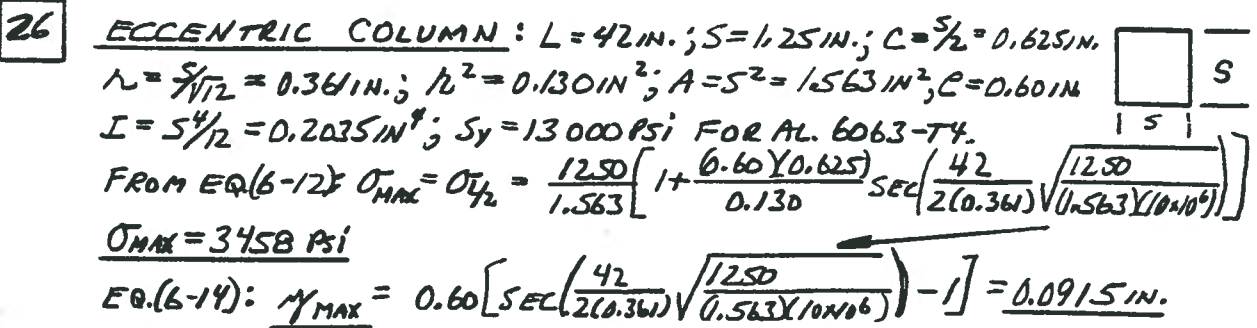 26 ECCENTRIC COLUMN: L = 42 IN.; S = 1.25 IN.; C = S/2 = 0.625 IN.
r = S/√12 = 0.361 IN.; r² = 0.130 IN²; A = S² = 1.563 IN², e = 0.60 IN
I = S⁴/12 = 0.2035 IN⁴; Sy = 13 000 PSi FOR AL. 6063-T4.
S
S
FROM EQ(6-12): σMAX = σL/2 = 1250/1.563 [1 + (0.60)(0.625)/0.130 SEC(42/2(0.361) √1250/(1.563)(10x10⁶))]
σMAX = 3458 PSi
EQ.(6-14): yMAX = 0.60[SEC(42/2(0.361) √1250/(1.563)(10x10⁶)) - 1] = 0.0915 IN.